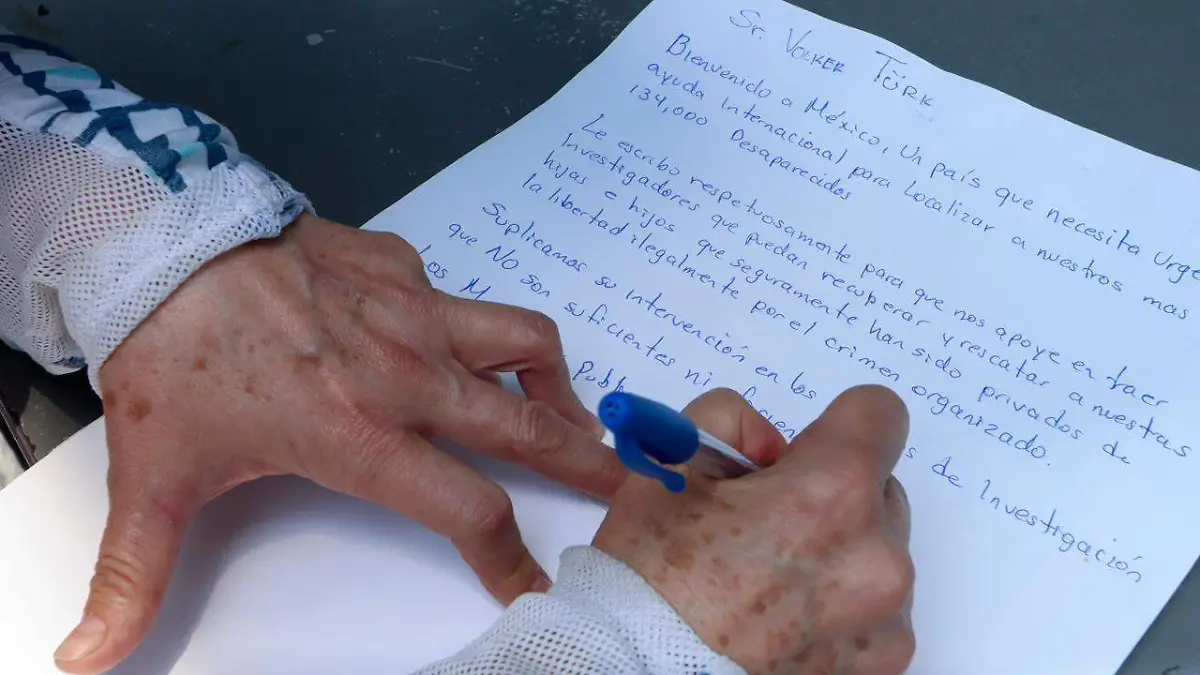 Sr. Volker Türk
Bienvenido a México, Un país que necesita Urge
ayuda Internacional para Localizar a nuestros mas
134,000 Desaparecidos
Le escribo respetuosamente para que nos apoye en traer
Investigadores que puedan recuperar y rescatar a nuestras
hijas e hijos que seguramente han sido privados de
la libertad ilegalmente por el crimen organizado.
Suplicamos su intervención en los de Investigación
que No son suficientes ni
los M
Públ